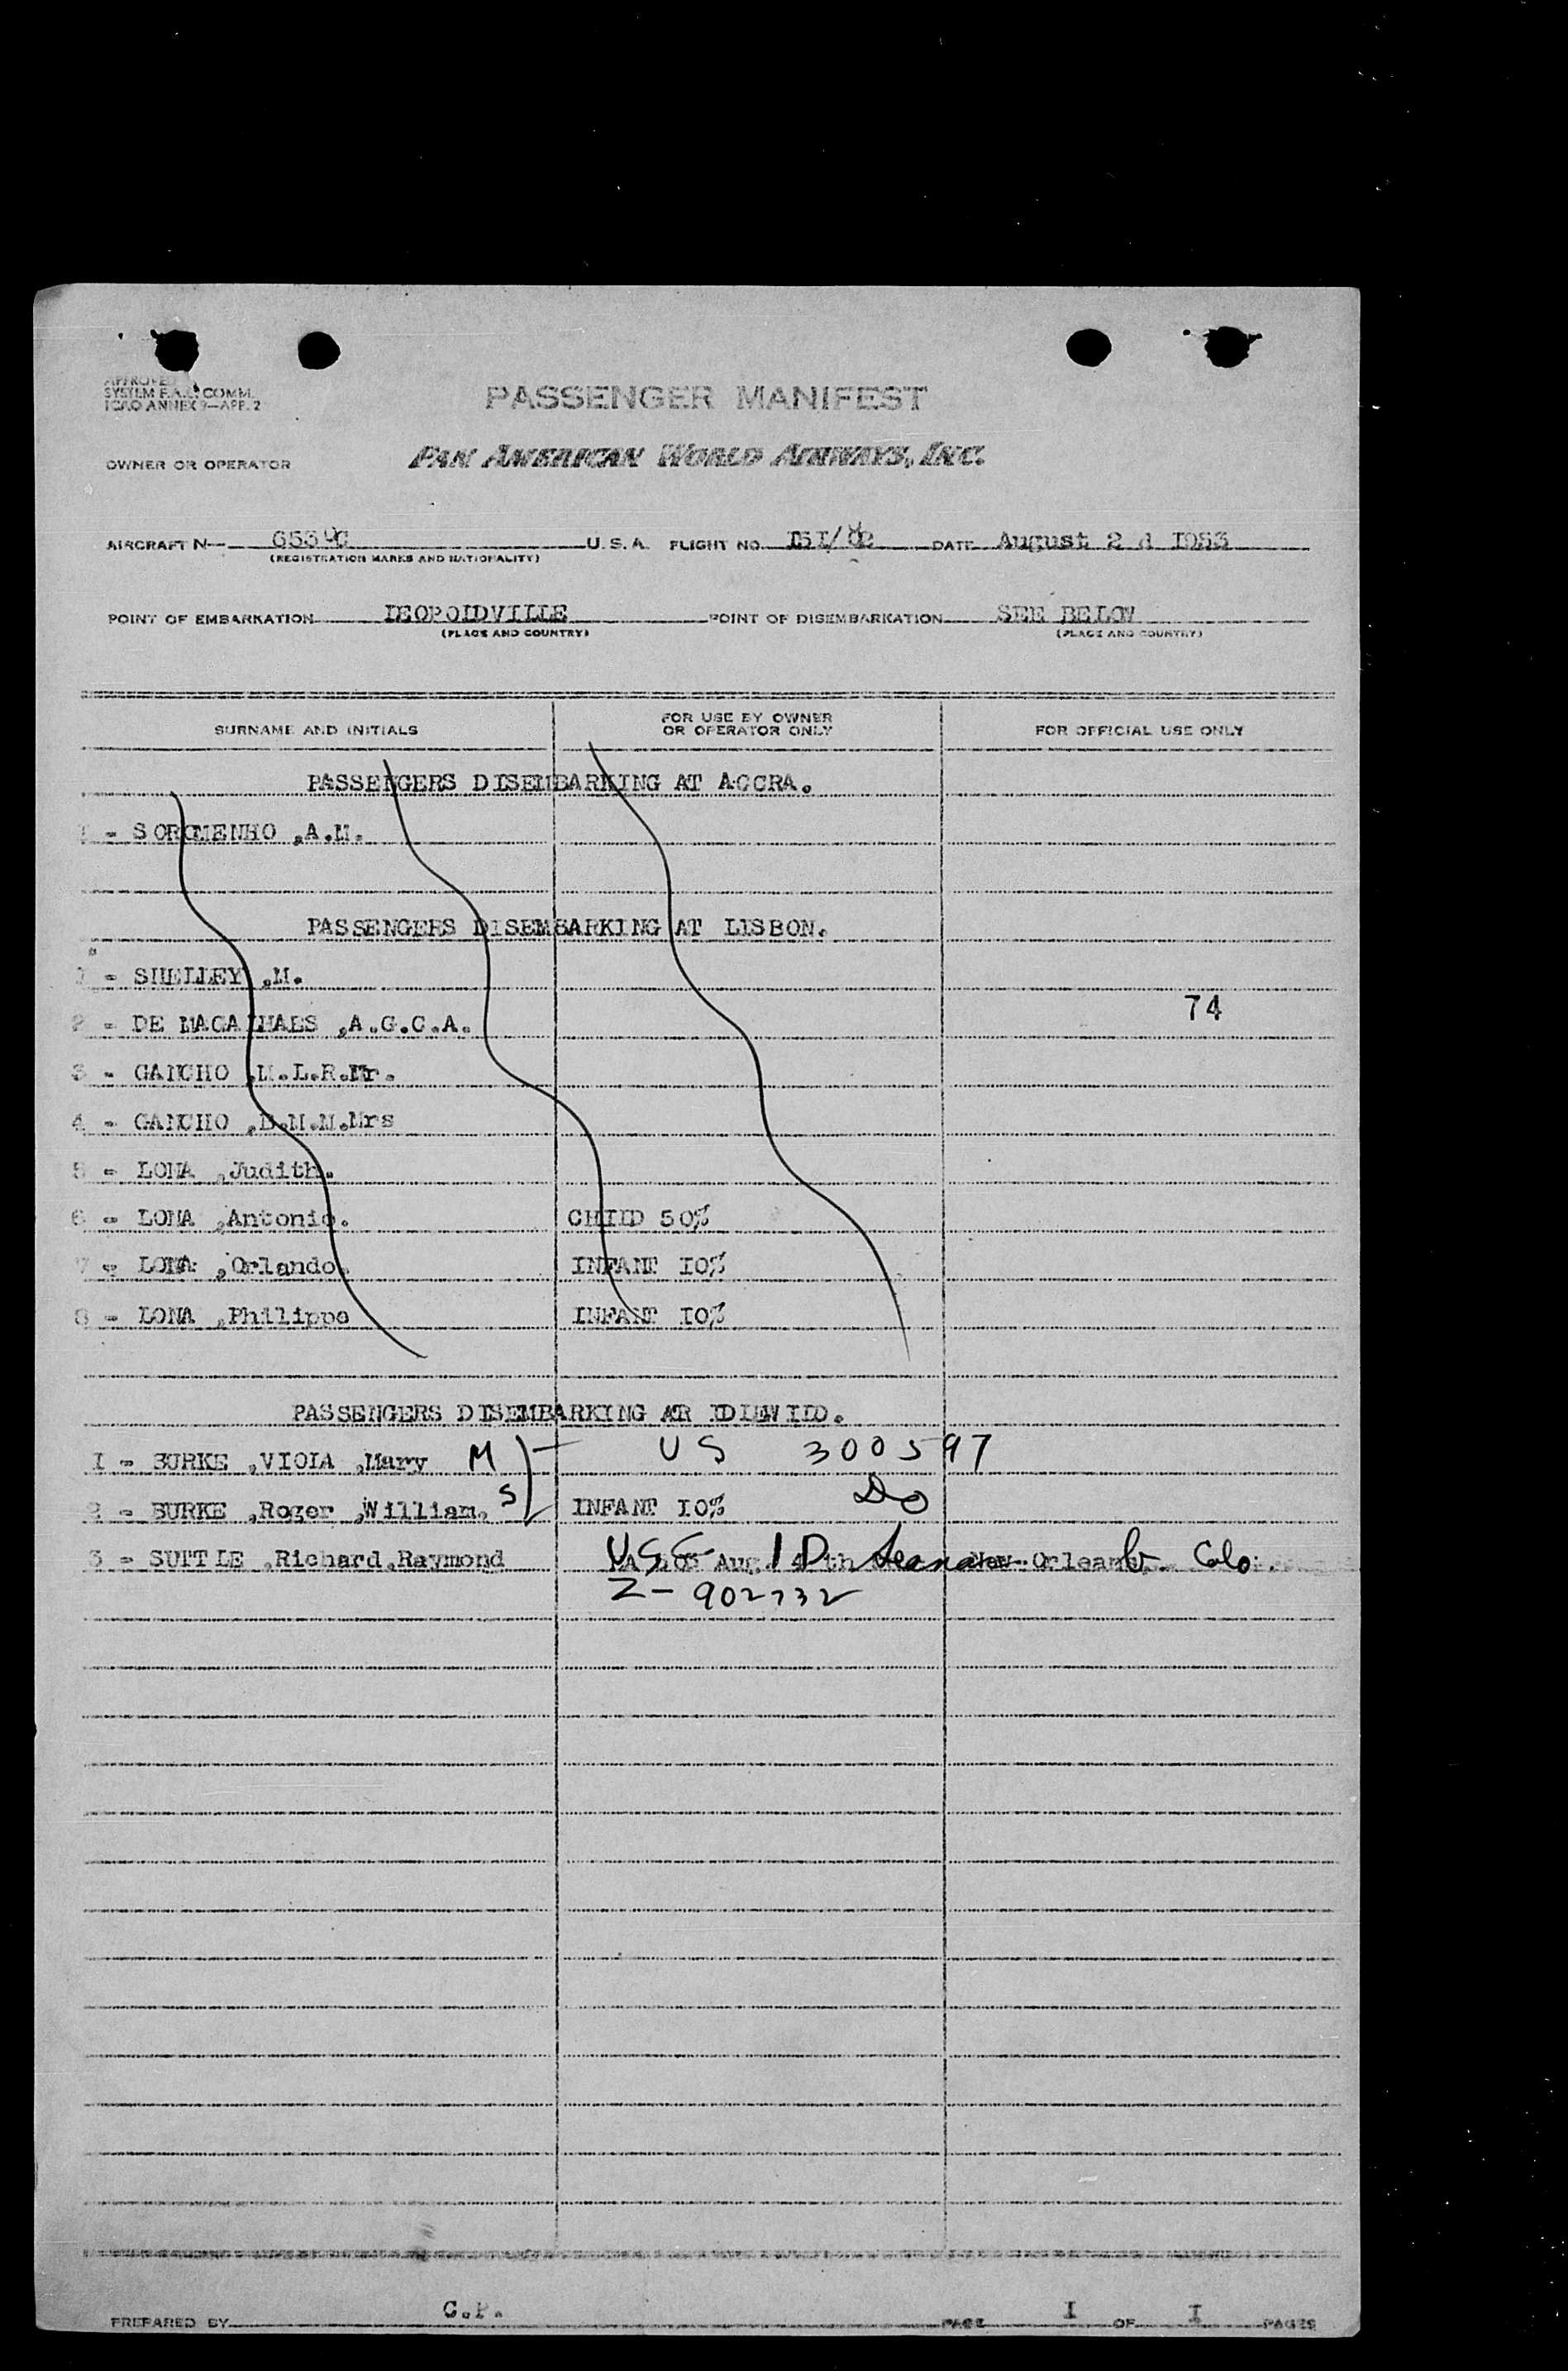 APPROVED
SYSTEM F.A.L. COMM.
ICAO ANNEX 9—APP. 2
PASSENGER MANIFEST
OWNER OR OPERATOR PAN AMERICAN WORLD AIRWAYS, INC.
AIRCRAFT N— U.S.A. FLIGHT NO. DATE August 2 d 1953
(REGISTRATION MARKS AND NATIONALITY)
POINT OF EMBARKATION LEOPOLDVILLE POINT OF DISEMBARKATION SEE BELOW
(PLACE AND COUNTRY) (PLACE AND COUNTRY)
SURNAME AND INITIALS FOR USE BY OWNER OR OPERATOR ONLY FOR OFFICIAL USE ONLY
PASSENGERS DISEMBARKING AT ACCRA.
I - SOROMENHO ,A.M.
PASSENGERS DISEMBARKING AT LISBON.
I - SHELLEY ,M.
74
2 - DE MAGALHAES ,A.G.C.A.
3 - GANCHO ,M.L.R.Mr.
4 - GANCHO ,D.M.M.Mrs
5 - LOMA ,Judith.
6 - LOMA ,Antonio. CHILD 50%
7 - LOMA ,Orlando. INFANT I0%
8 - LOMA ,Philippe INFANT I0%
PASSENGERS DISEMBARKING AR IDLEWILD.
I - BURKE ,VIOLA ,Mary M US 300597
2 - BURKE ,Roger ,William. S INFANT I0% Do
3 - SUTTLE ,Richard,Raymond USC ID Colo.
Z- 902732
PREPARED BY C.P. PAGE I OF I PAGES